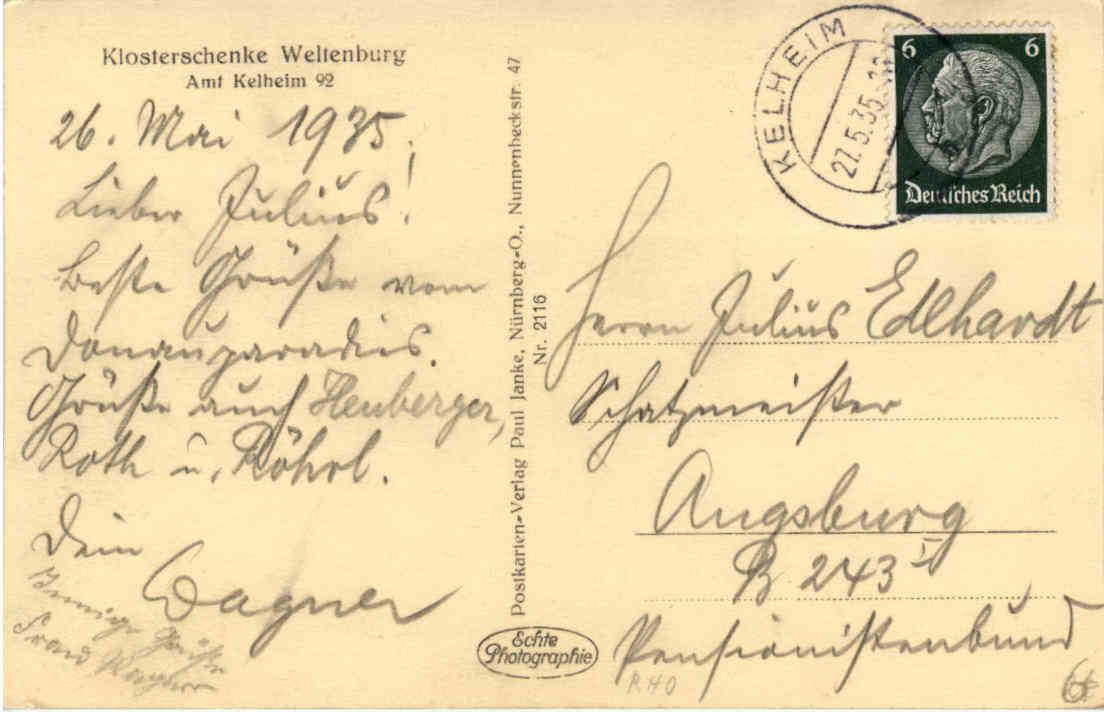 Klosterschenke Weltenburg
Amt Kelheim 92
26. Mai 1935.
Lieber Julius!
Beste Grüße vom
Donauparadies.
Grüße auch Heuberger,
Roth u. Röhrl.
Dein
Wagner
Innige Grüße
Wagner
Postkarten-Verlag Paul Janke, Nürnberg-O., Nunnenbeckstr. 47
Nr. 2116
Echte
Photographie
KELHEIM
27.5.35
6 6
Deutsches Reich
Herrn Julius Edlhardt
Schatzmeister
Augsburg
B 243 I
Pensionistenbund
RHO
6